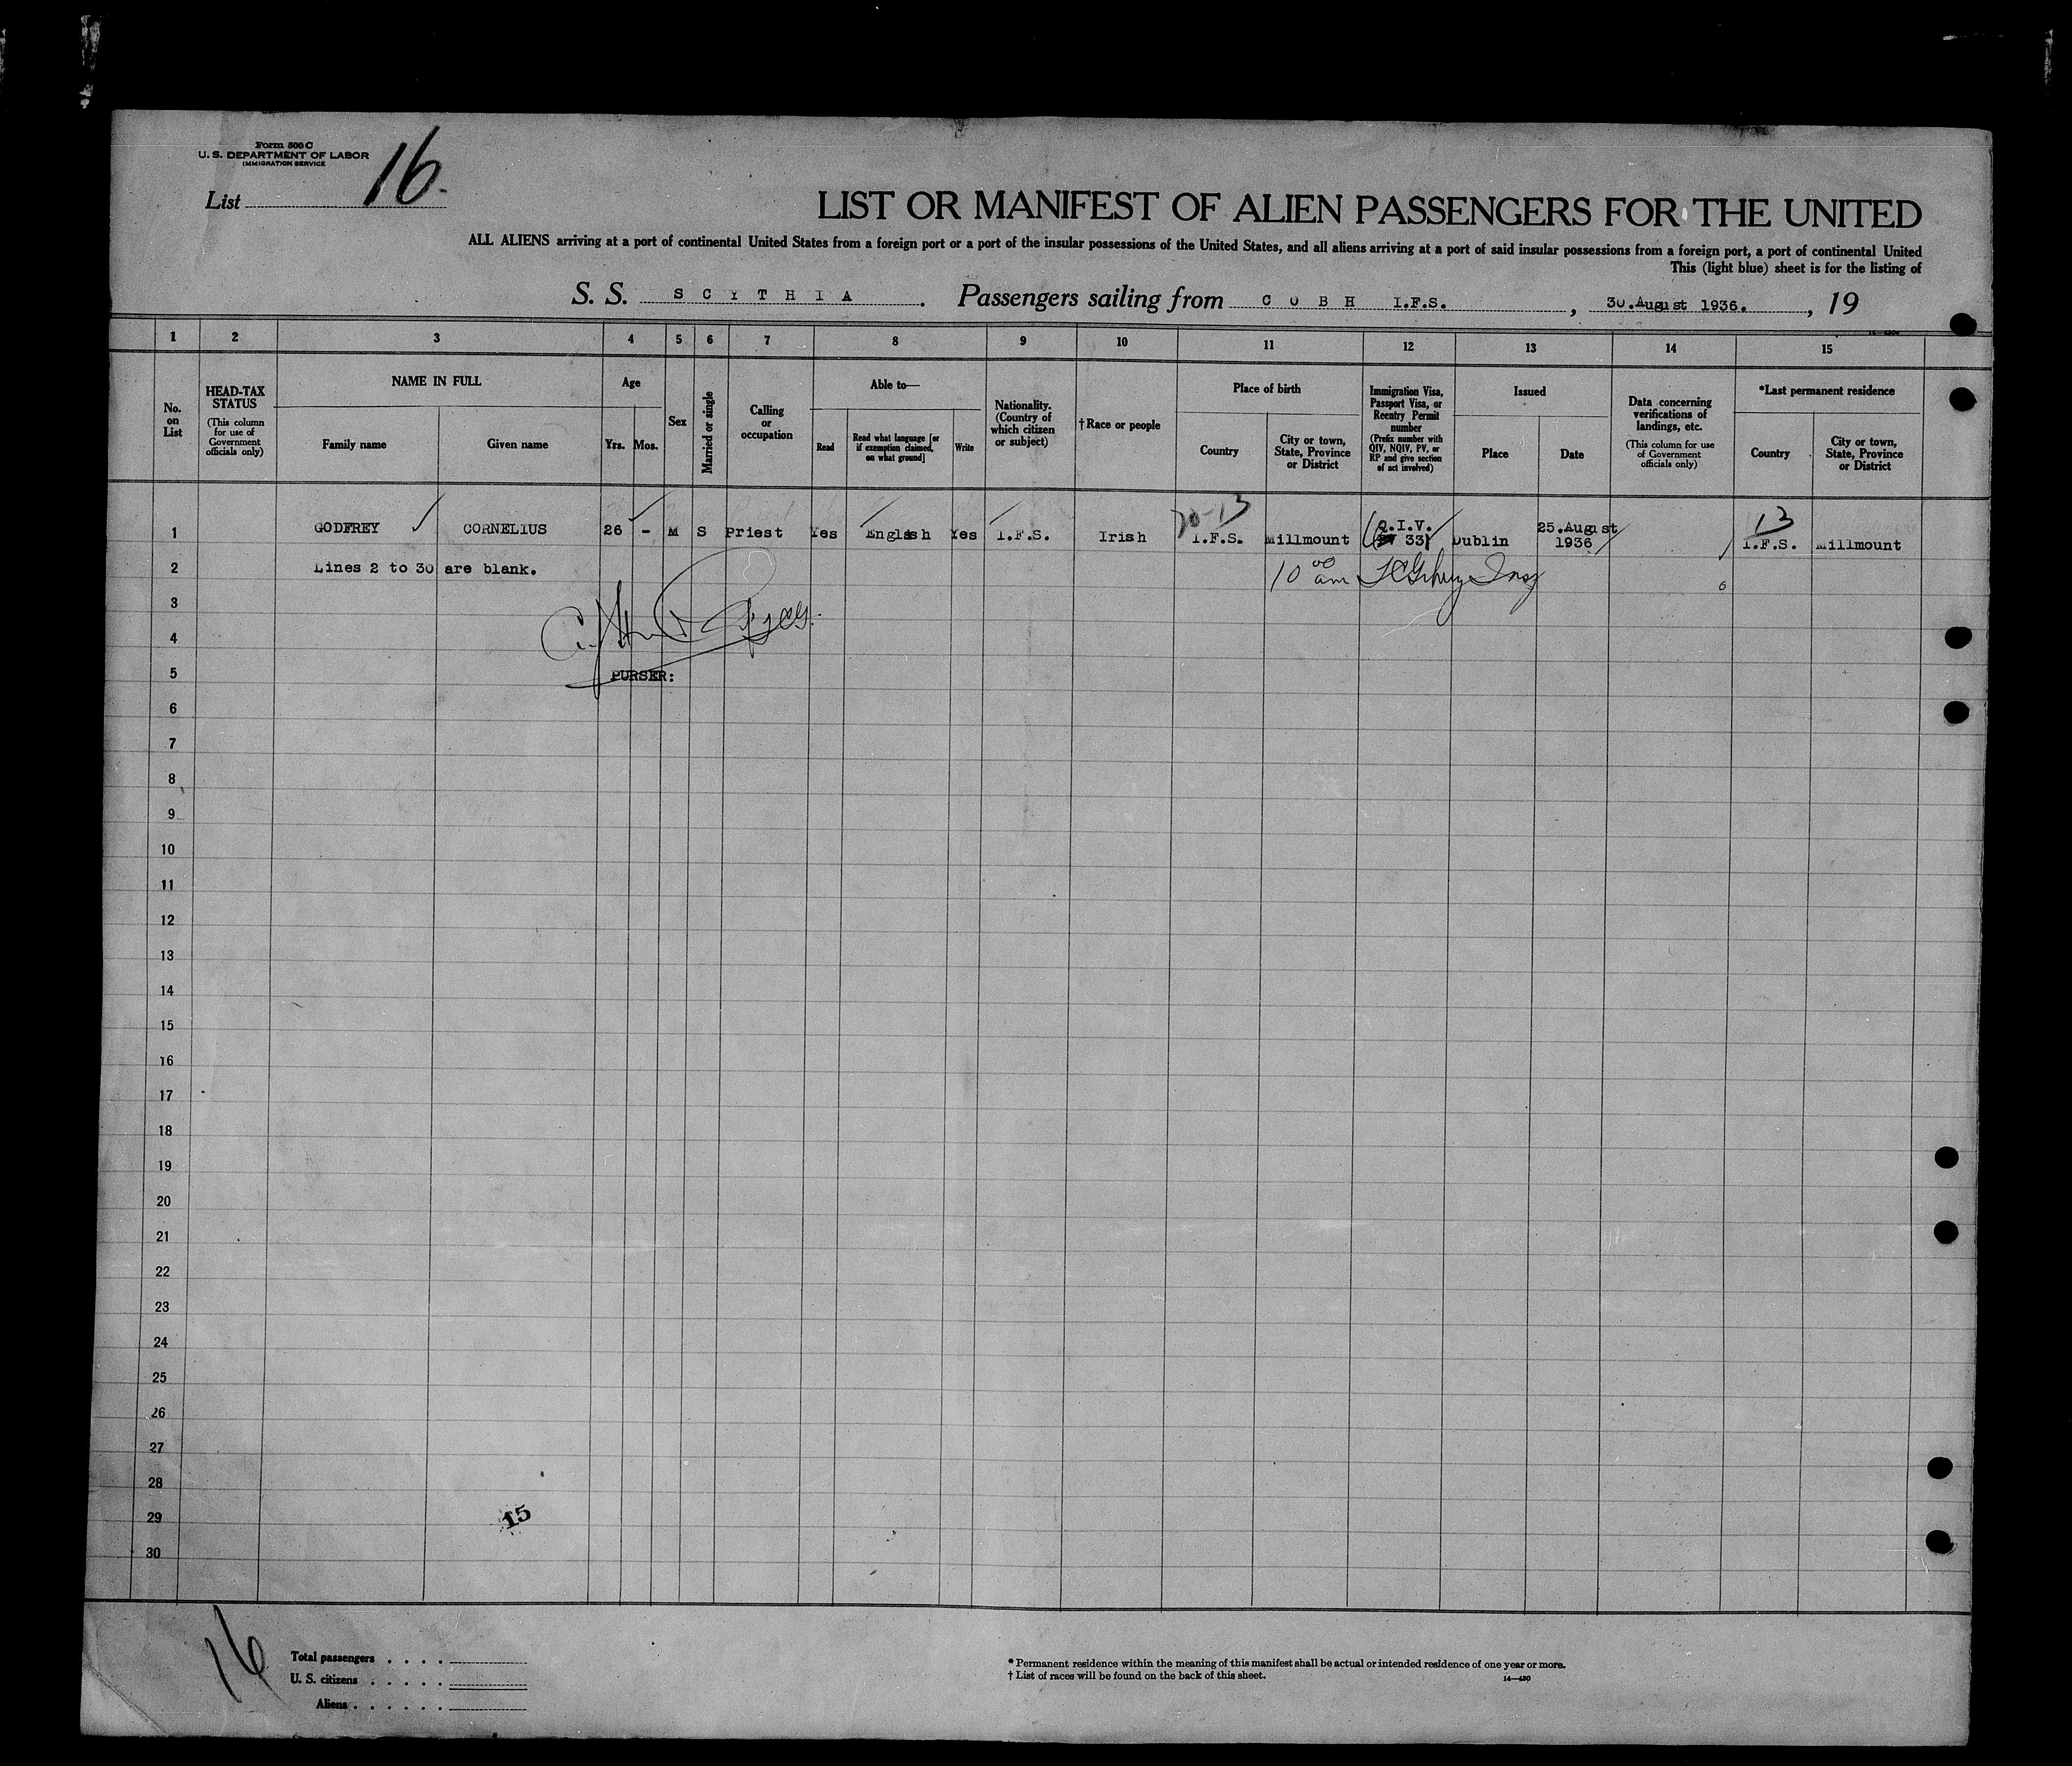 Form 500 C
U. S. DEPARTMENT OF LABOR
IMMIGRATION SERVICE
List 16.
LIST OR MANIFEST OF ALIEN PASSENGERS FOR THE UNITED
ALL ALIENS arriving at a port of continental United States from a foreign port or a port of the insular possessions of the United States, and all aliens arriving at a port of said insular possessions from a foreign port, a port of continental United
This (light blue) sheet is for the listing of
S. S. SCYTHIA. Passengers sailing from COBH I.F.S., 30.August 1936., 19
1 2 3 4 5 6 7 8 9 10 11 12 13 14 15
No. on List
HEAD-TAX STATUS
(This column for use of Government officials only)
NAME IN FULL
Family name Given name
Age
Yrs. Mos.
Sex
Married or single
Calling or occupation
Able to—
Read Read what language [or if exemption claimed, on what ground] Write
Nationality. (Country of which citizen or subject)
†Race or people
Place of birth
Country City or town, State, Province or District
Immigration Visa, Passport Visa, or Reentry Permit number
(Prefix number with QIV, NQIV, PV, or RP and give section of act involved)
Issued
Place Date
Data concerning verifications of landings, etc.
(This column for use of Government officials only)
*Last permanent residence
Country City or town, State, Province or District
13
1 GODFREY CORNELIUS 26 - M S Priest Yes English Yes I.F.S. Irish I.F.S. Millmount Q.I.V. 331 Dublin 25.August 1936 I.F.S. Millmount
2 Lines 2 to 30 are blank. 10 00 am
3
4
5 PURSER:
6
7
8
9
10
11
12
13
14
15
16
17
18
19
20
21
22
23
24
25
26
27
28
29 15
30
16
Total passengers . . . .
U. S. citizens . . . . .
Aliens . . . . . .
* Permanent residence within the meaning of this manifest shall be actual or intended residence of one year or more.
† List of races will be found on the back of this sheet.
14—430